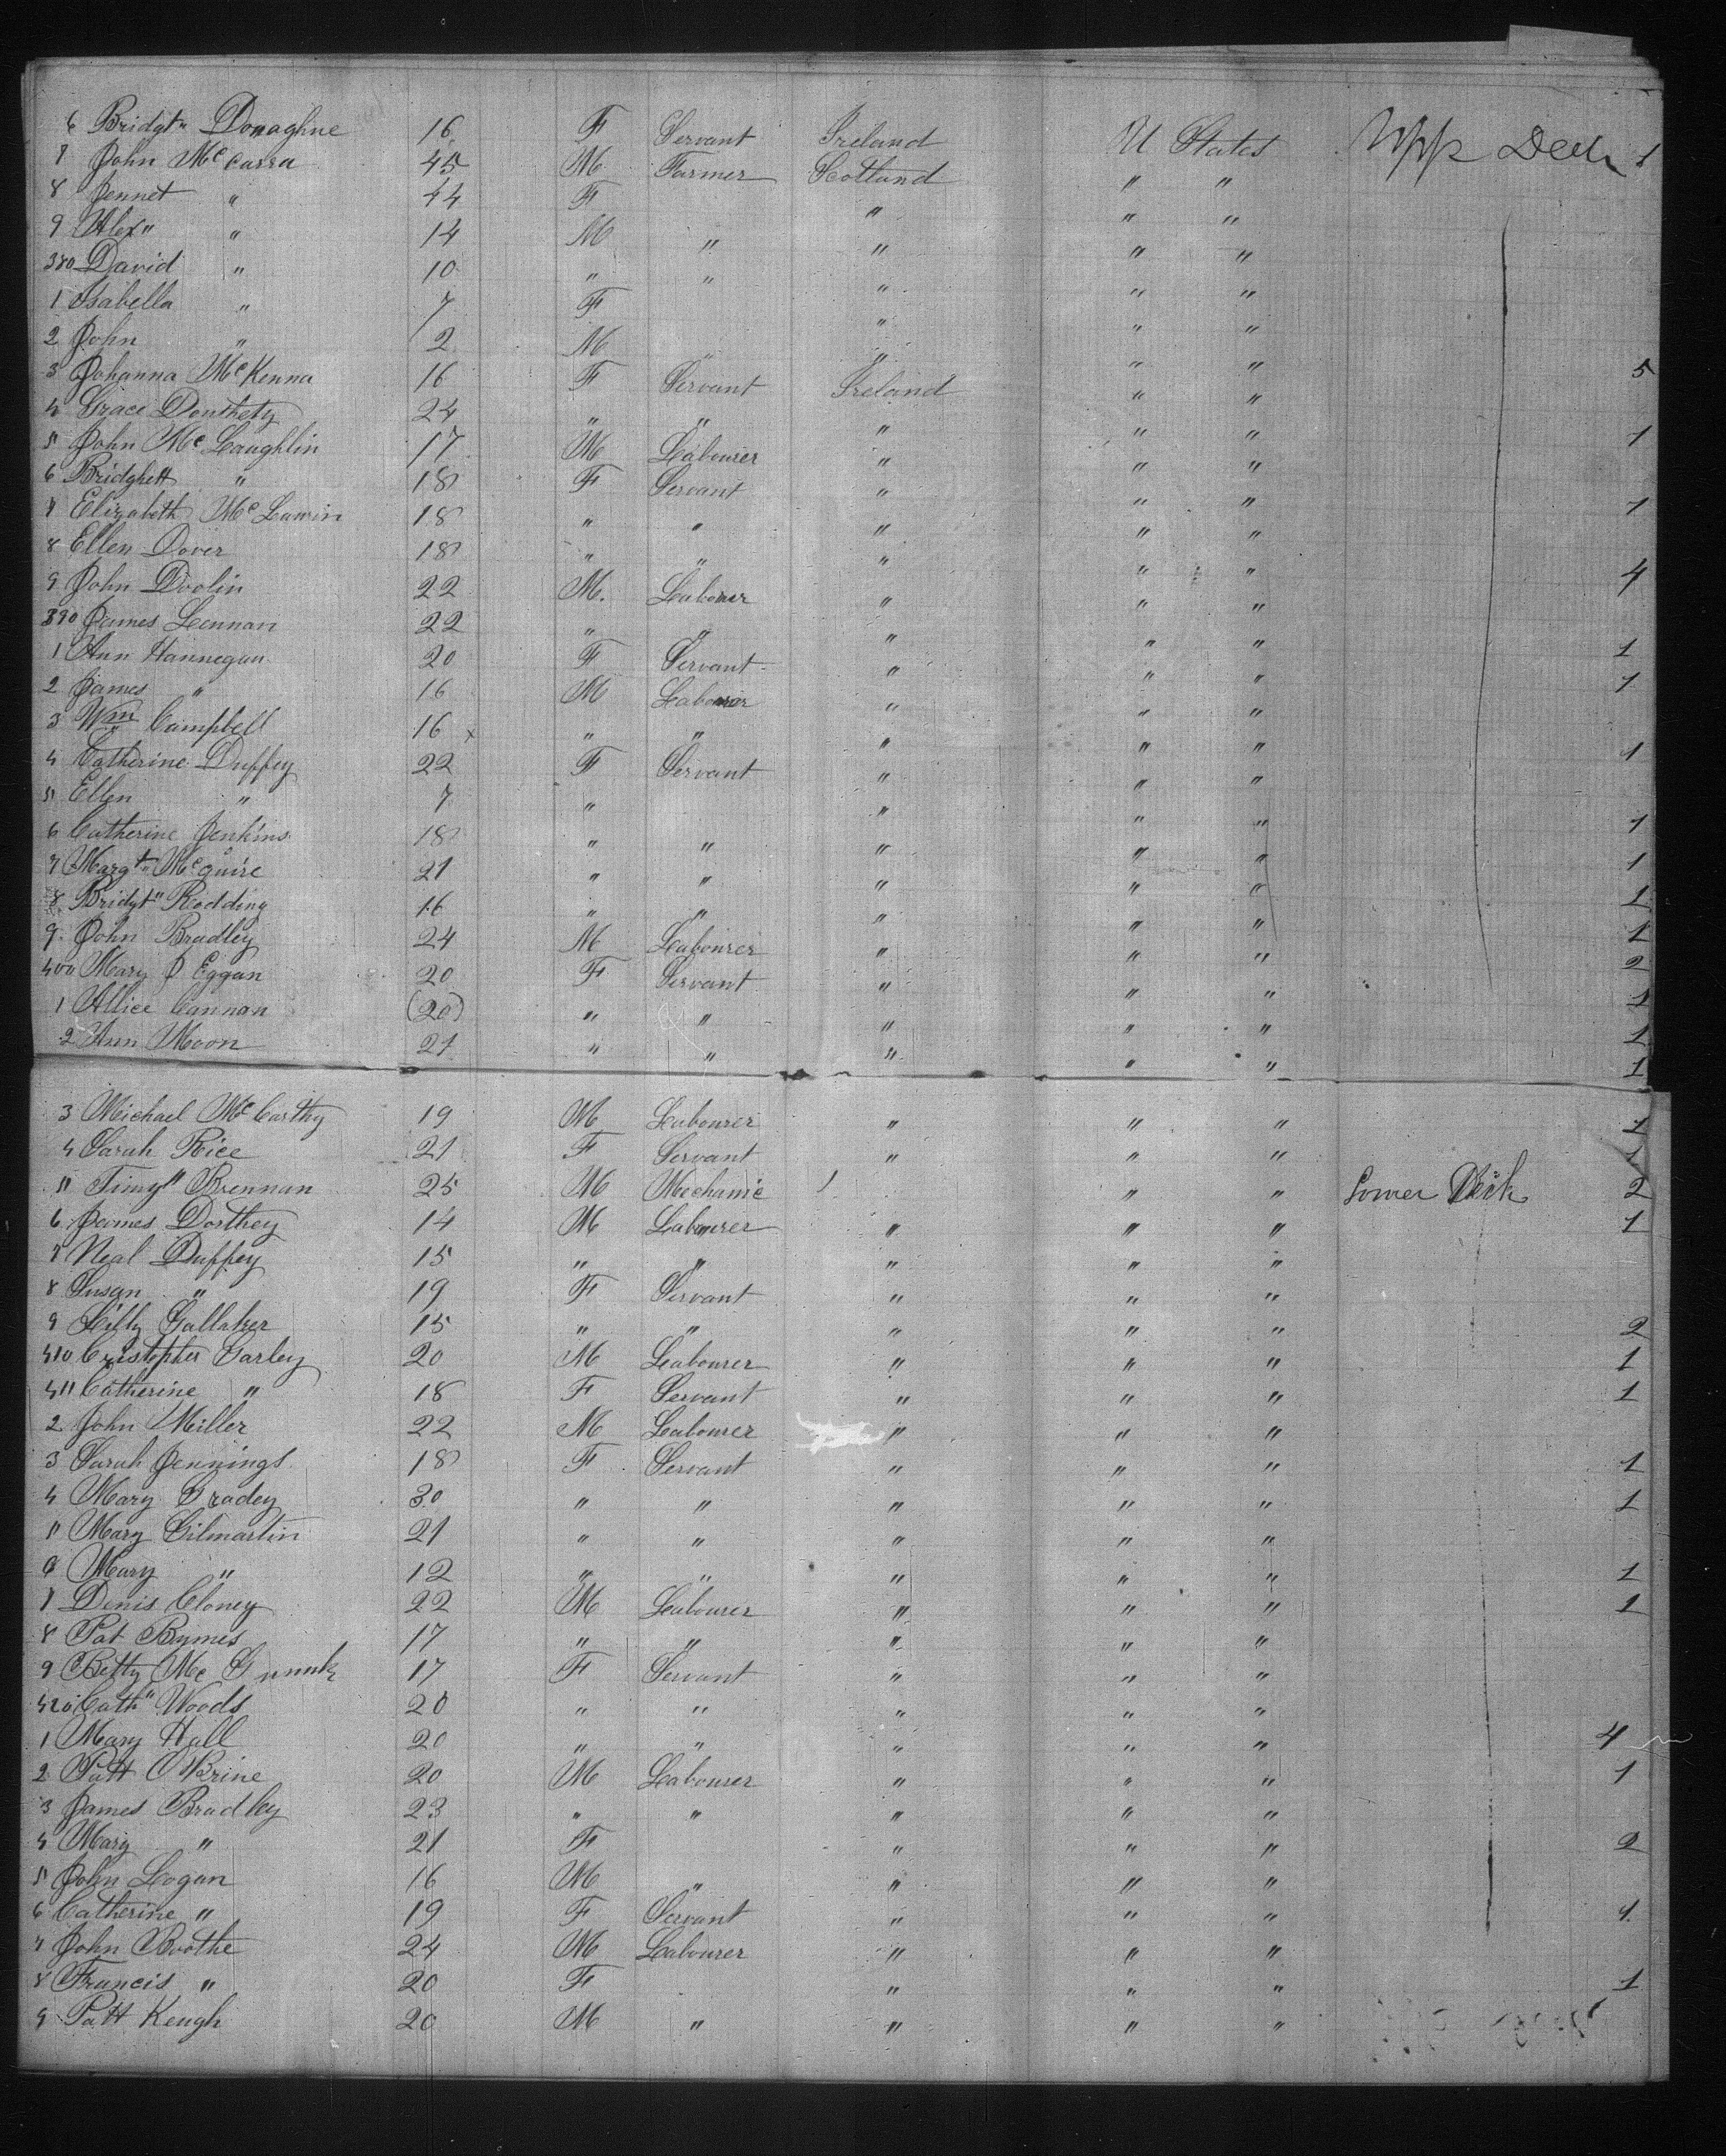 6 Bridgt" Donaghue 16 F Servant Ireland U States Upp Deck 1
7 John Mc Carra 45 M Farmer Scotland " "
8 Jennet " 44 F " " "
9 Alexr " 14 M " " " "
380 David " 10 " " " " "
1 Isabella " 7 F " " "
2 John " 2 M " " " "
3 Johanna McKenna 16 F Servant Ireland " " 5
4 Grace Douthety 24 " " " " "
5 John McLaughlin 17 M Labourer " " " 1
6 Bridghett " 18 F Servant " " "
7 Elizabeth Mc Lawrin 18 " " " " " 1
8 Ellen Dover 18 " " " " "
9 John Doolin 22 M. Labourer " " " 4
390 James Lennan 22 " " " " "
1 Ann Hannegan 20 F Servant " " " 1
2 James " 16 M Labourer " " " 1
3 Wm Campbell 16 x " " " " "
4 Catherine Duffey 22 F Servant " " " 1
5 Ellen " 7 " " " "
6 Catherine Jenkins 18 " " " " " 1
7 Margt" McGuire 21 " " " " " 1
8 Bridgt" Rodding 16 " " " " " 1
9 John Bradley 24 M Labourer " " " 1
400 Mary J Eggan 20 F Servant " " " 2
1 Allice Cannan (20) " " " " " 1
2 Ann Moon 21 " " " " " 1
1
3 Michael McCarthy 19 M Labourer " " " 1
4 Sarah Rice 21 F Servant " " " 1
5 Timy" Brennan 25 M Mechanic " " Lower Deck 2
6 James Dorthey 14 M Labourer " " " 1
7 Neal Duffey 15 " " " " "
8 Susan " 19 F Servant " " "
9 Lilly Gallaher 15 " " " " " 2
410 Cristopher Farley 20 M Labourer " " " 1
411 Catherine " 18 F Servant " " " 1
2 John Miller 22 M Labourer " " "
3 Sarah Jennings 18 F Servant " " " 1
4 Mary Gradey 30 " " " " " 1
5 Mary Gilmartin 21 " " " " "
6 Mary " 12 " " " " " 1
7 Denis Cloney 22 M Labourer " " " 1
8 Pat Byrnes 17 " " " " "
9 Betty Mc 17 F Servant " " "
420 Cath" Woods 20 " " " " "
1 Mary Hall 20 " " " " " 4
2 Patt OBrine 20 M Labourer " " " 1
3 James Bradley 23 " " " " "
4 Mary " 21 F " " " 2
5 John Logan 16 M " " " "
6 Catherine " 19 F Servant " " " 1
7 John Boothe 24 M Labourer " " "
8 Francis " 20 F " " " 1
9 Patt Keugh 20 M " " " "